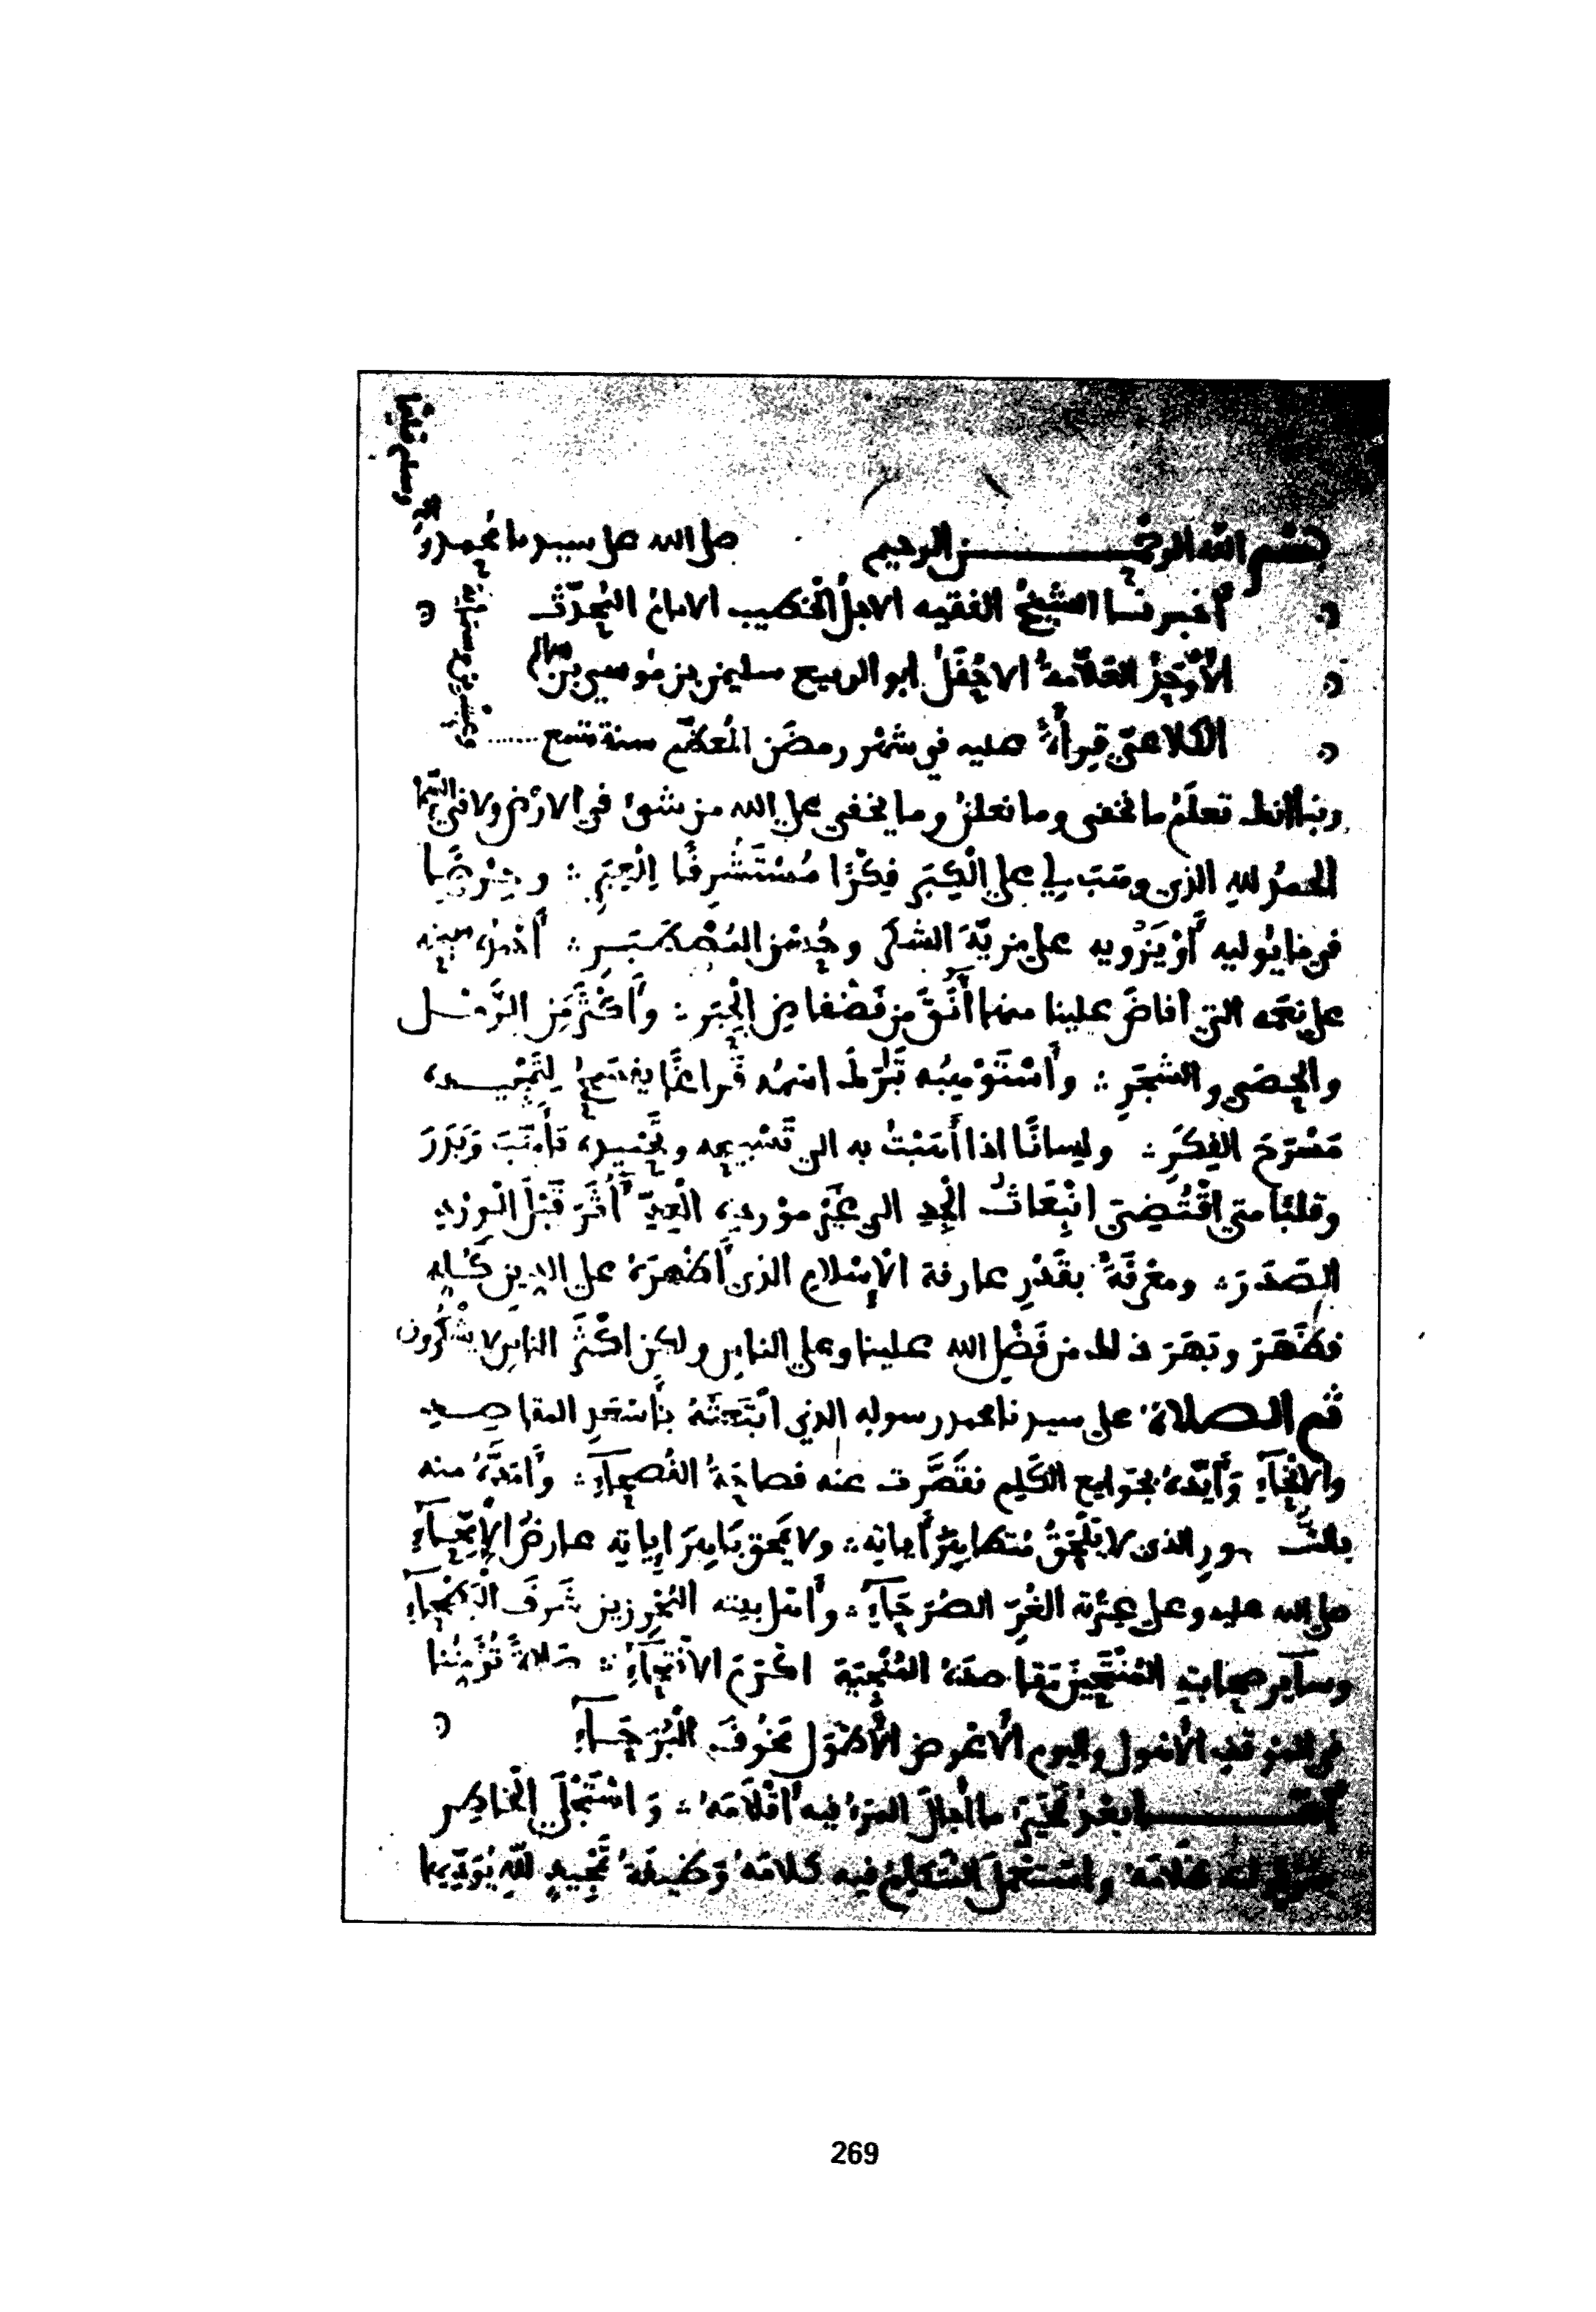 بسم الله الرحمن الرحيم صلى الله على سيدنا محمد وآله
وسلم تسليما
أخبرنا الشيخ الفقيه الاجل الخطيب الامام المحدث
الأوحد العلامة الاحفل ابو الربيع سليمن بن موسى بن سالم
الكلاعي قراءة عليه في شهر رمضن المعظم سنة تسع ......
وعشرين وستمائة
ربنا انك تعلم ما نخفي وما نعلن وما يخفى على الله من شيء في الارض ولا في السما
الحمد لله الذي وهب لي على الكبر فكرا مستشرفا الى العبر
في ما يوليه أو يزويه على مزية الشكر وحسن المصطبر
على نعمه التي افاض علينا منها أنق من فضفاض الحبر وأكثر من الرمل
والحصى والشجر وأستوهبه تبرك اسمه
مسرح الفكر ولسانا اذا أهبت به الى تسبيحه
وقلبا متى اقتضي انبعاث الجد الى غير مورده آثر قبل الورد
الصدر ومعرفة بقدر عارفة الإسلام الذي أظهره على الدين كله
فظهر وبهر ذلك من فضل الله علينا وعلى الناس ولكن اكثر الناس لا يشكرون
ثم الصلاة على سيدنا محمد رسوله الذي ابتعثه بأسعد المقاصد
والانحاء وأيده بجوامع الكلم فقصرت عنه فصاحة الفصحاء وأمده منه
بالنور الذي لا يلحق
صلى الله عليه وعلى عترته الغر الصرحاء وأهل بيته المحرزين شرف
وسائر صحابته المنتحين مقاصده المنجية اكرم الانتحاء صلاة تؤمننا
في الموقف الأهول واليوم الأعرض الأطول مخوف البرحاء
أما بعد فخير ما أجال المرء فيه أقلامه واستجلى الخاطر
واستعمل المتكلم فيه كلامه وظيفة تمجيد لله يؤديها
269